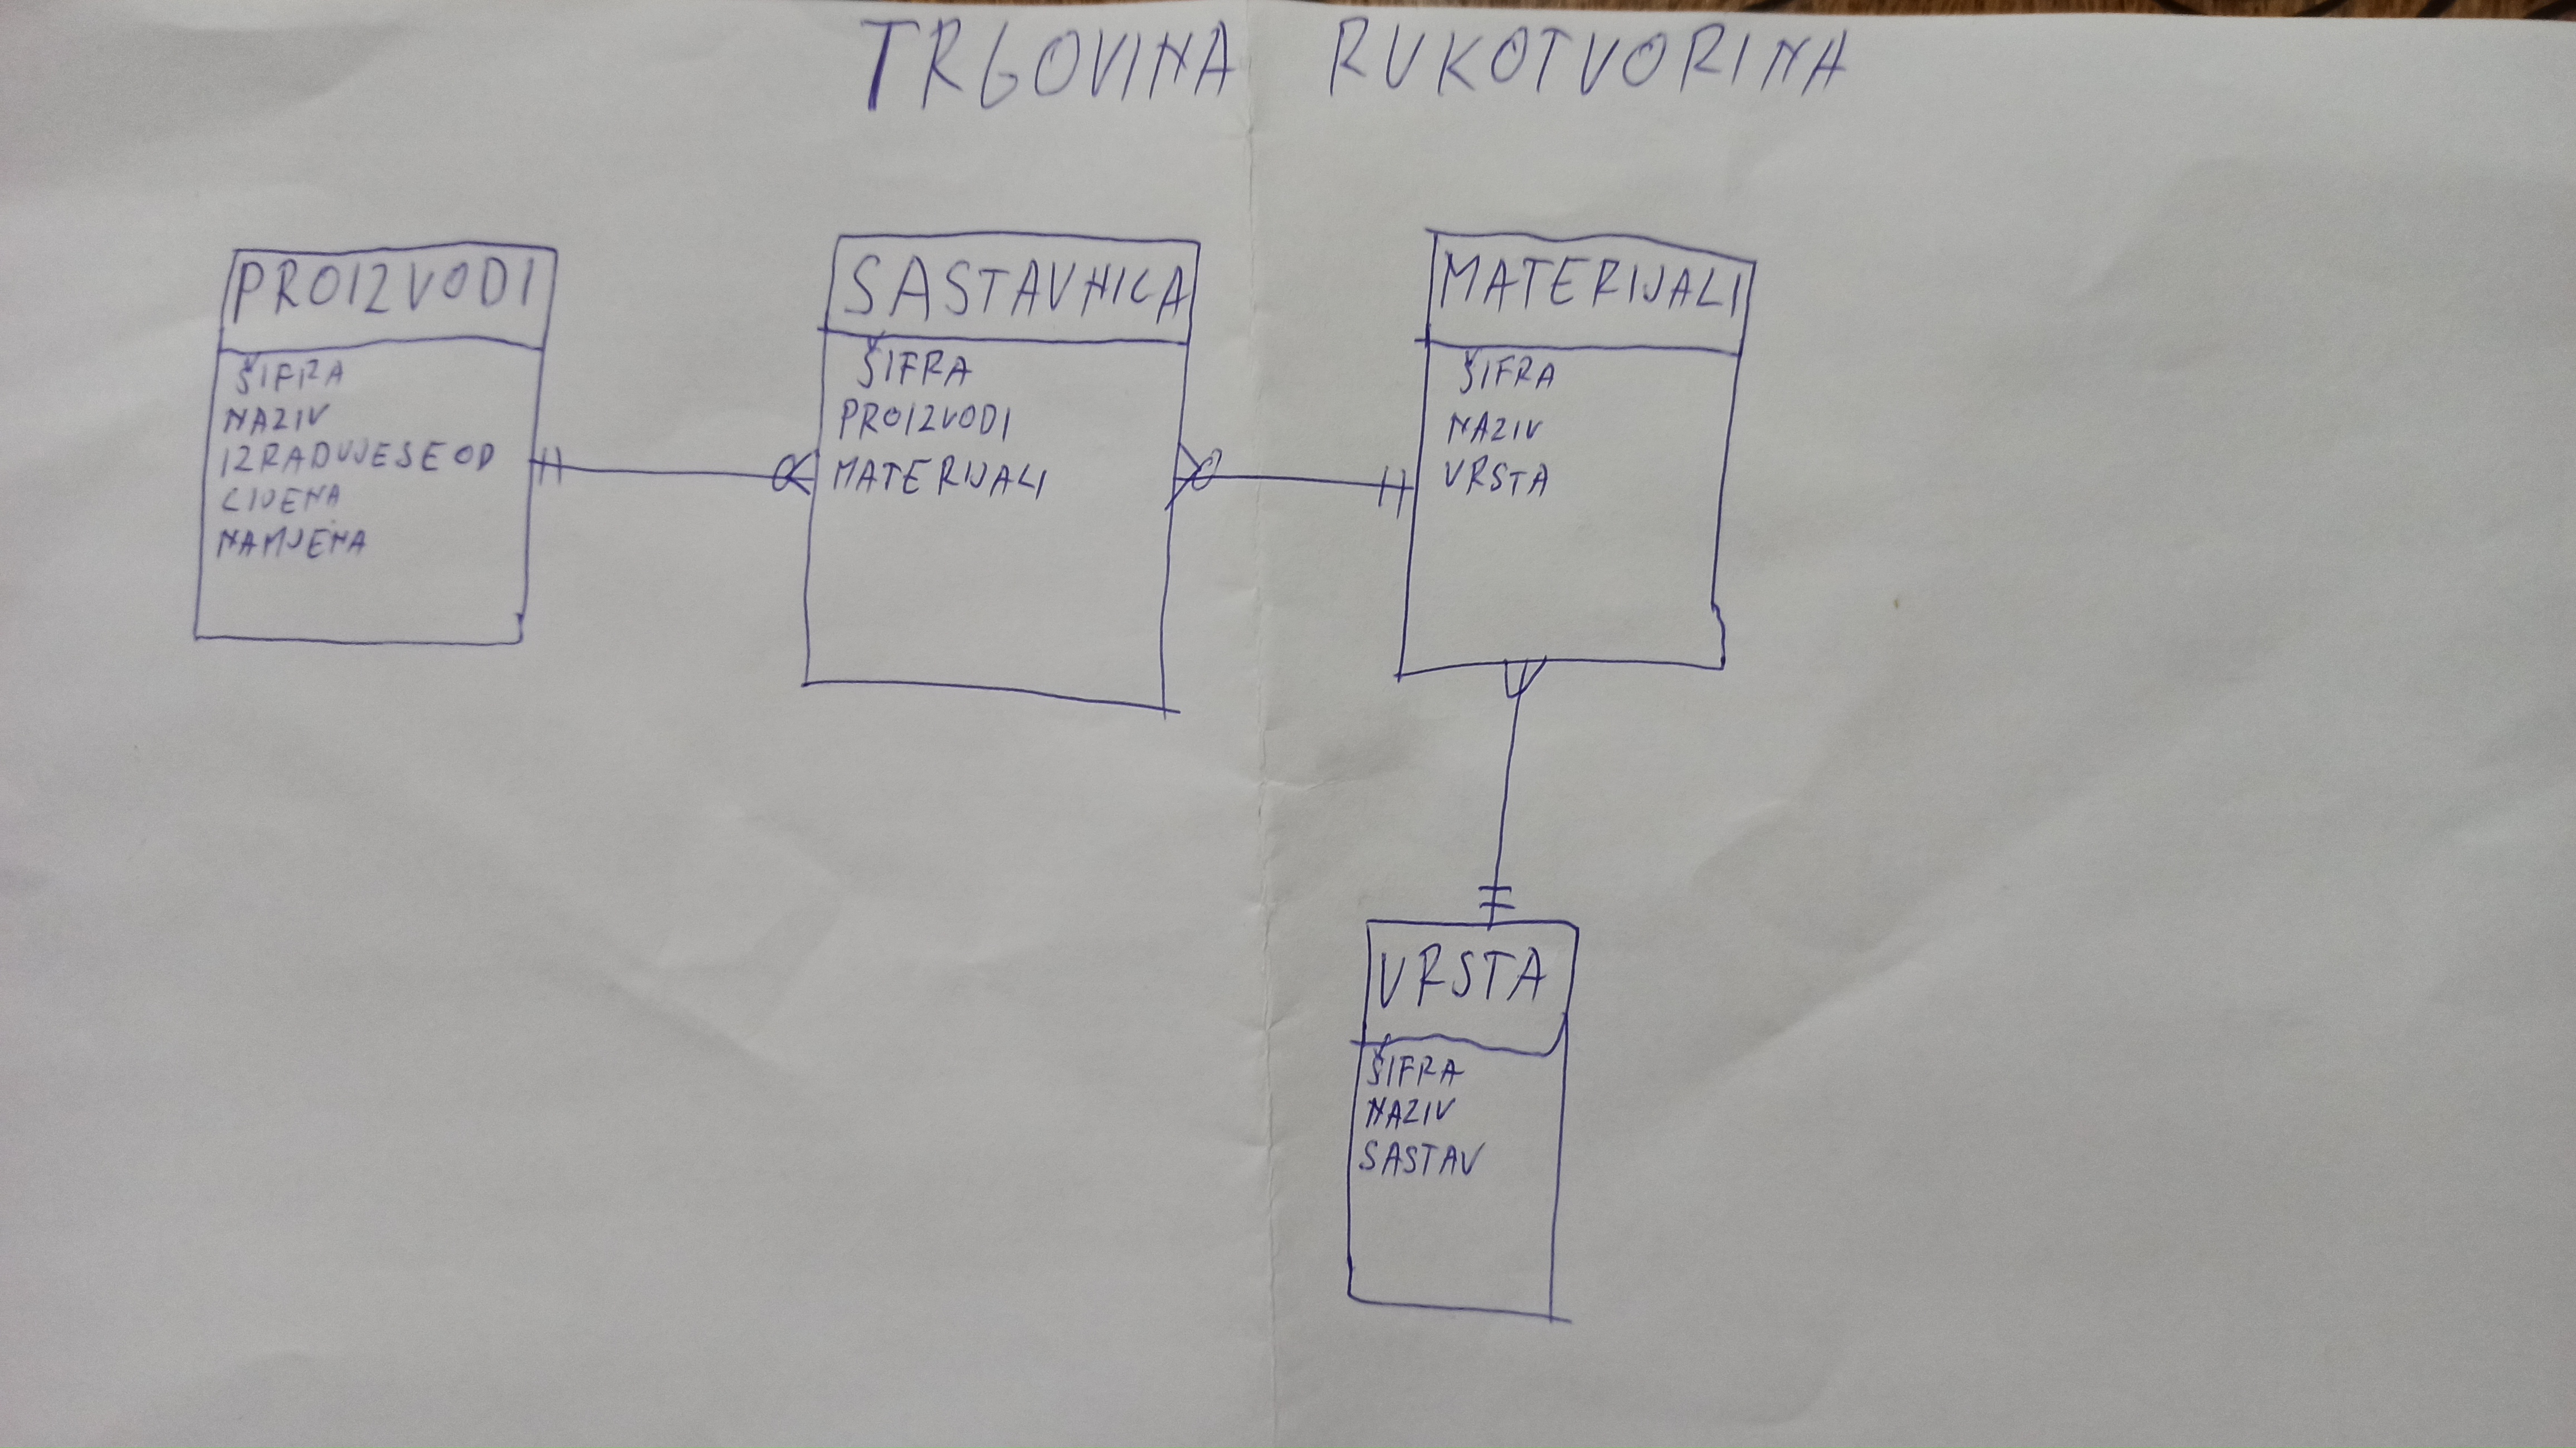 TRGOVINA RUKOTVORINA
PROIZVODI
ŠIFRA
NAZIV
IZRADUJESEOD
CIJENA
NAMJENA
SASTAVNICA
ŠIFRA
PROIZVODI
MATERIJALI
MATERIJALI
ŠIFRA
NAZIV
VRSTA
VRSTA
ŠIFRA
NAZIV
SASTAV